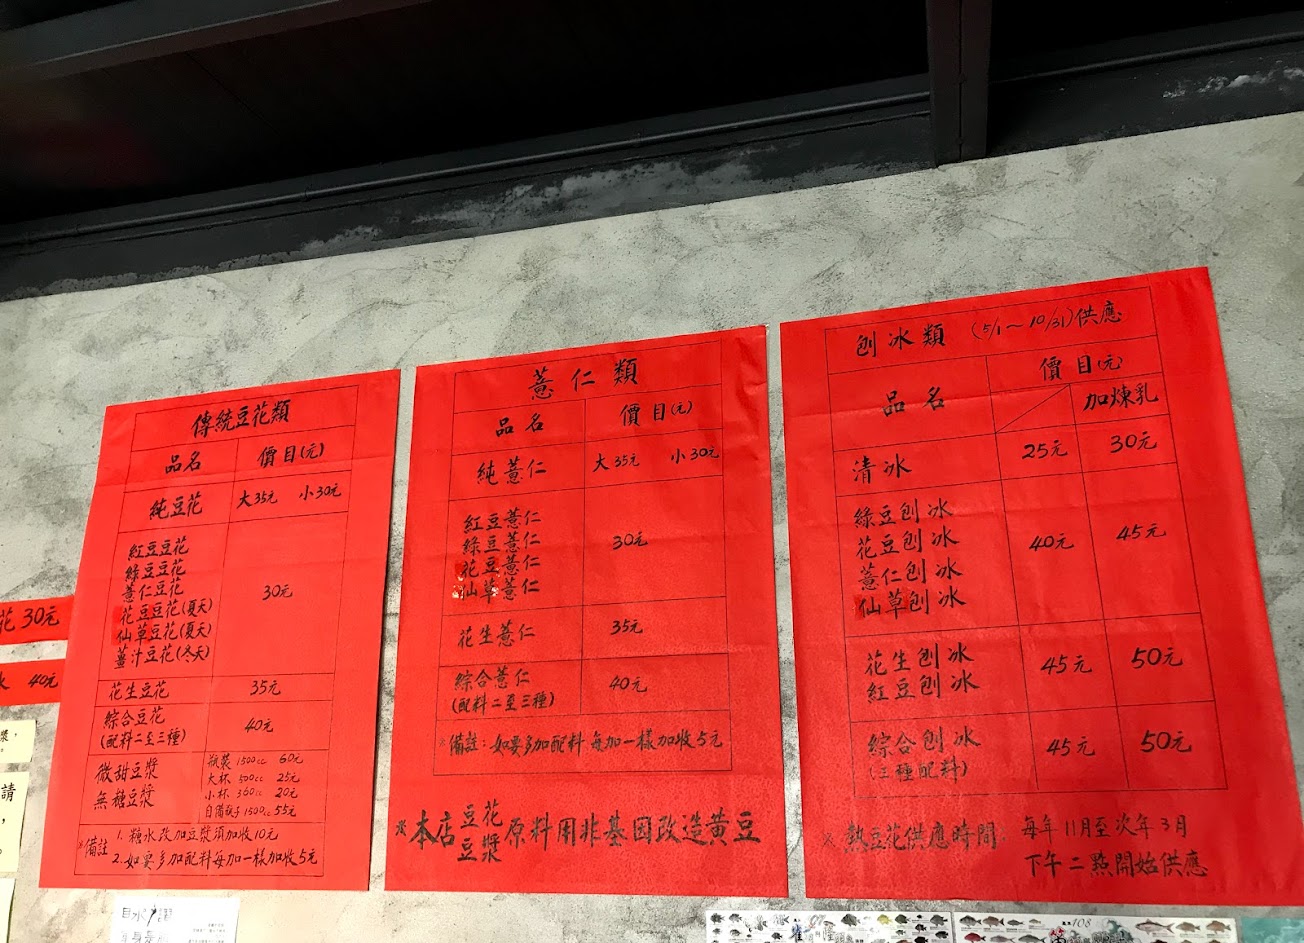 花 30元
40元
傳統豆花類
品名 價目(元)
純豆花 大35元 小30元
紅豆豆花
綠豆豆花
薏仁豆花
花豆豆花(夏天)
仙草豆花(夏天)
薑汁豆花(冬天)
30元
花生豆花 35元
綜合豆花
(配料二至三種)
40元
微甜豆漿
無糖豆漿
瓶裝 1500cc 60元
大杯 500cc 25元
小杯 360cc 20元
自備瓶子1500cc 55元
※備註
1. 糖水改加豆漿須加收10元
2. 如要多加配料每加一樣加收5元
薏仁類
品名 價目(元)
純薏仁 大35元 小30元
紅豆薏仁
綠豆薏仁
花豆薏仁
仙草薏仁
30元
花生薏仁 35元
綜合薏仁
(配料二至三種)
40元
※備註:如要多加配料每加一樣加收5元
※本店豆花豆漿原料用非基因改造黃豆
刨冰類 (5/1~10/31)供應
品名 價目(元)
加煉乳
清冰 25元 30元
綠豆刨冰
花豆刨冰
薏仁刨冰
仙草刨冰
40元 45元
花生刨冰
紅豆刨冰
45元 50元
綜合刨冰
(三種配料)
45元 50元
※熱豆花供應時間:每年11月至次年3月
下午二點開始供應
請
108